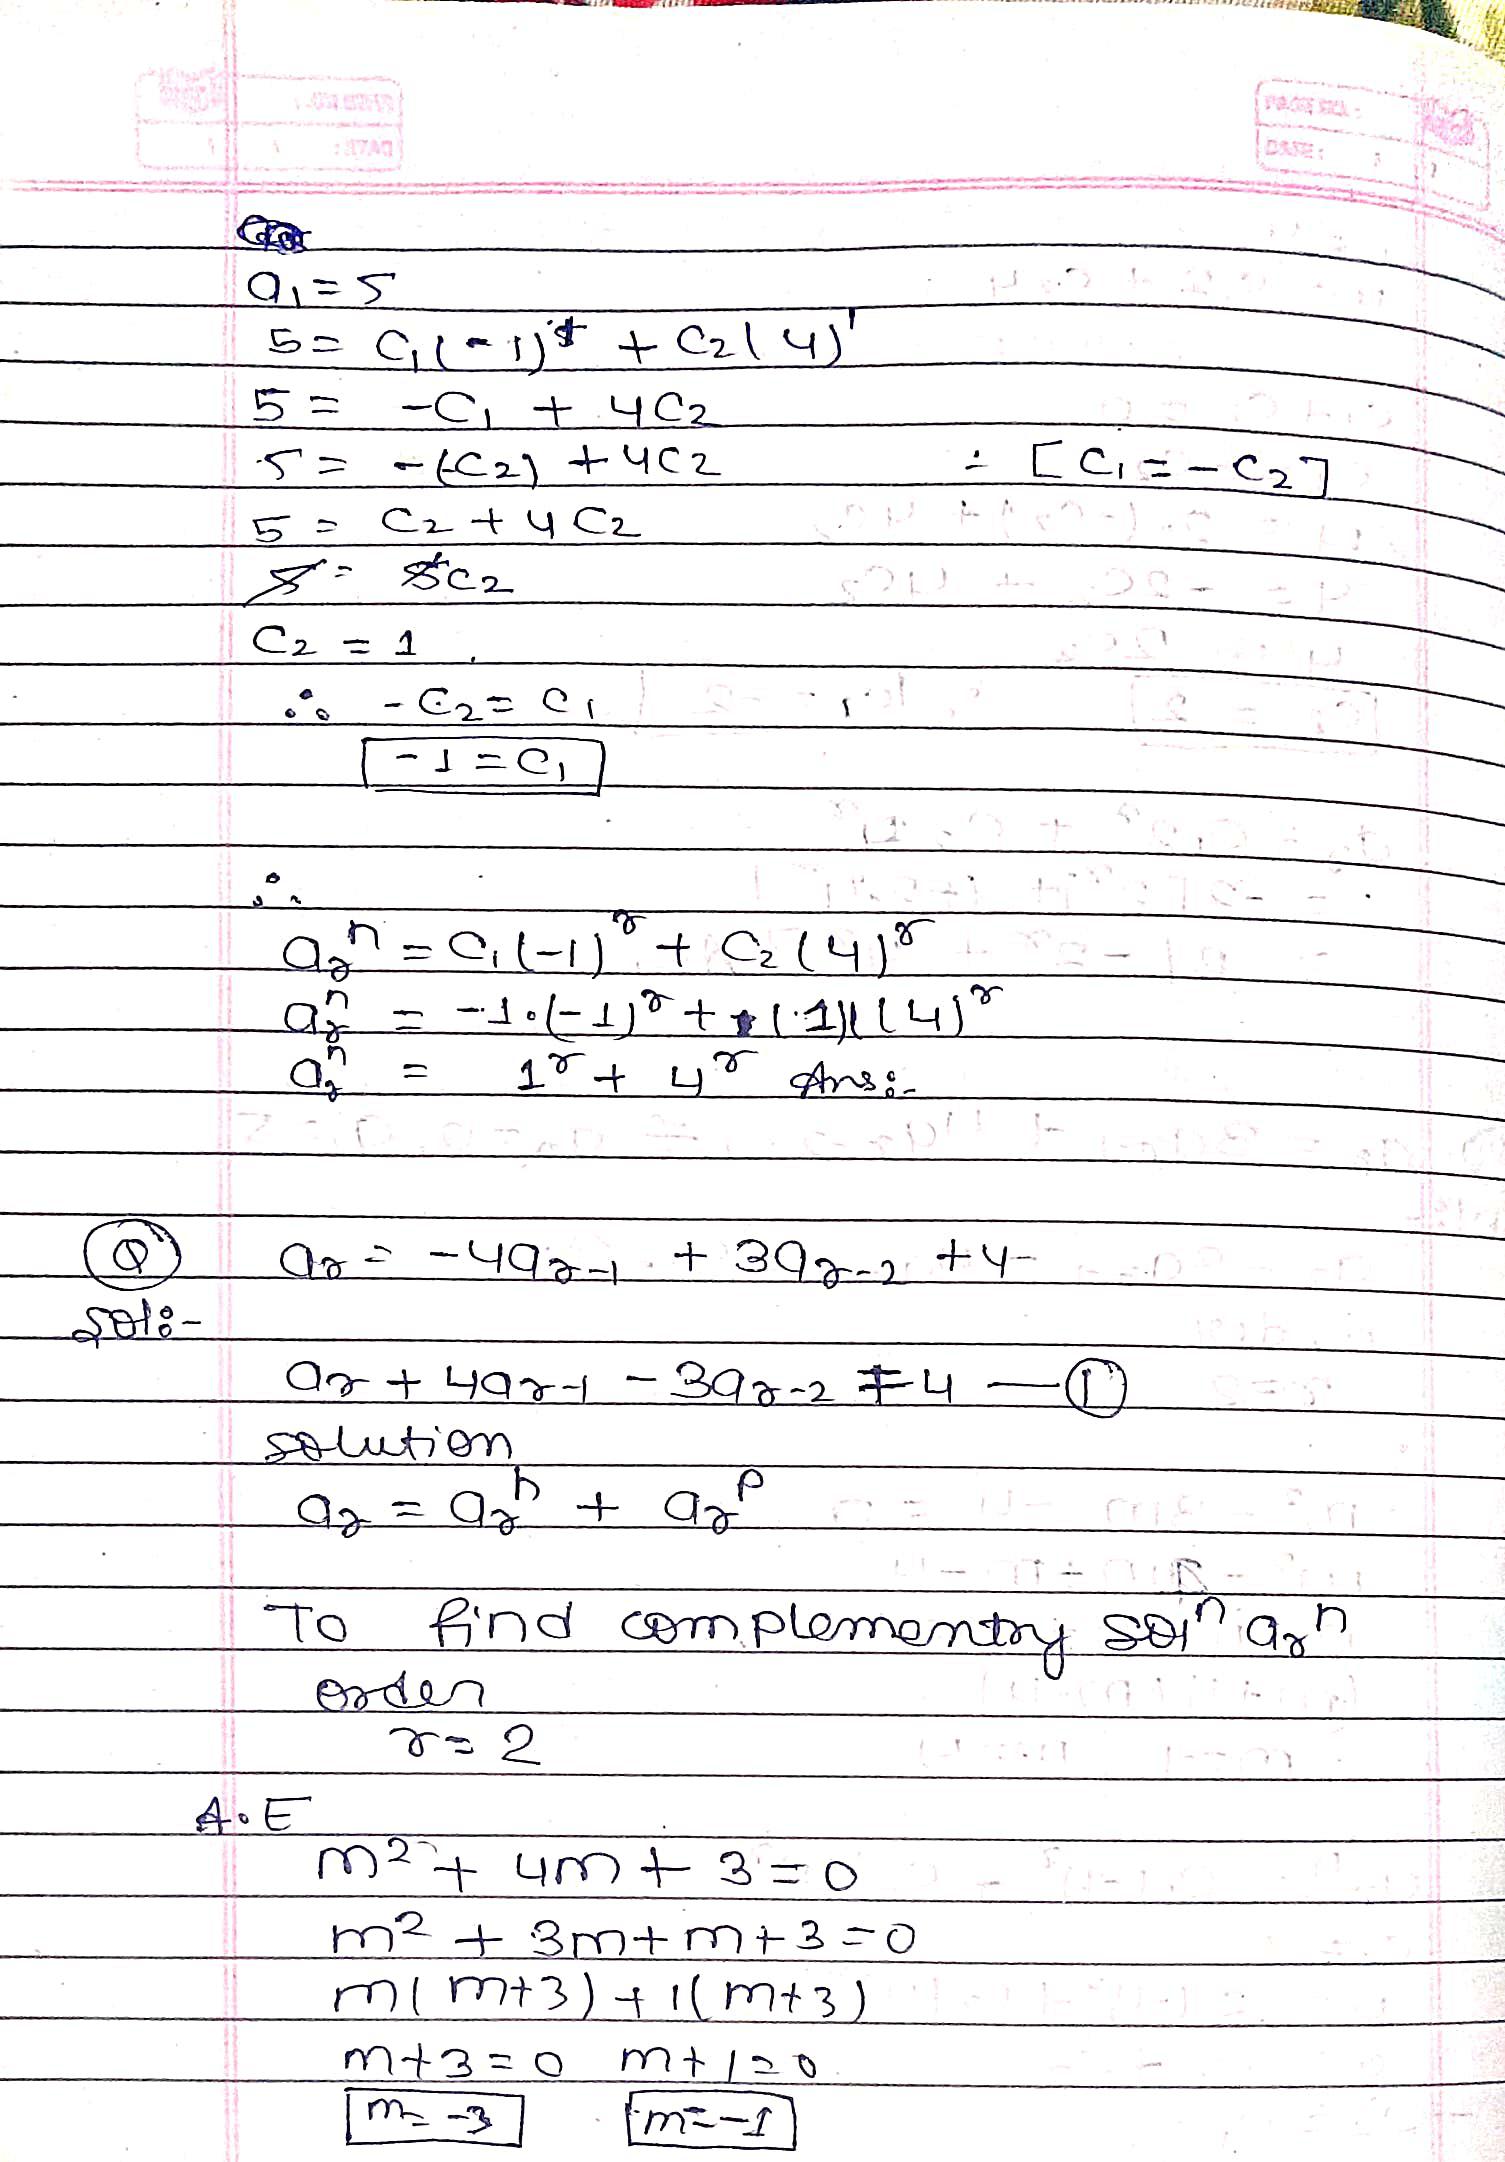 PAGE NO.:
DATE:
a₁=5
5= C₁(-1)¹ + C₂(4)¹
5 = -C₁ + 4C₂
5 = -(-C₂) + 4C₂ ∴ [C₁=-C₂]
5 = C₂ + 4C₂
5 = 5C₂
C₂ = 1
∴ -C₂ = C₁
-1 = C₁
∴
aᵣʰ = C₁(-1)ʳ + C₂(4)ʳ
aᵣʰ = -1.(-1)ʳ + (1)(4)ʳ
aᵣʰ = 1ʳ + 4ʳ Ans:-
Q aᵣ = -4aᵣ₋₁ + 3aᵣ₋₂ + 4
Sol:-
aᵣ + 4aᵣ₋₁ - 3aᵣ₋₂ = 4 — ①
solution
aᵣ = aᵣʰ + aᵣᵖ
To find complementry solⁿ aᵣʰ
order
r = 2
A.E
m² + 4m + 3 = 0
m² + 3m + m + 3 = 0
m(m+3) + 1(m+3)
m+3=0 m+1=0
m=-3 m=-1